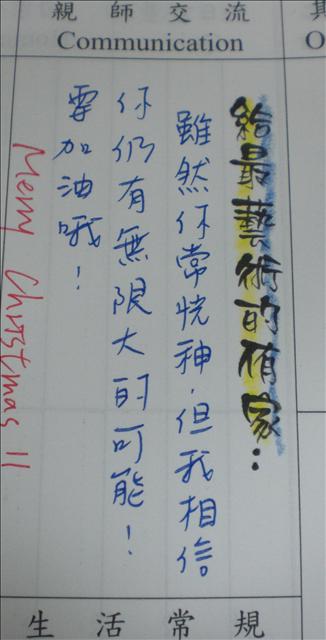 親師交流
Communication
給最藝術的侑家：
雖然你常恍神,但我相信
你仍有無限大的可能！
要加油哦！
Merry Christmas !!
生活常規